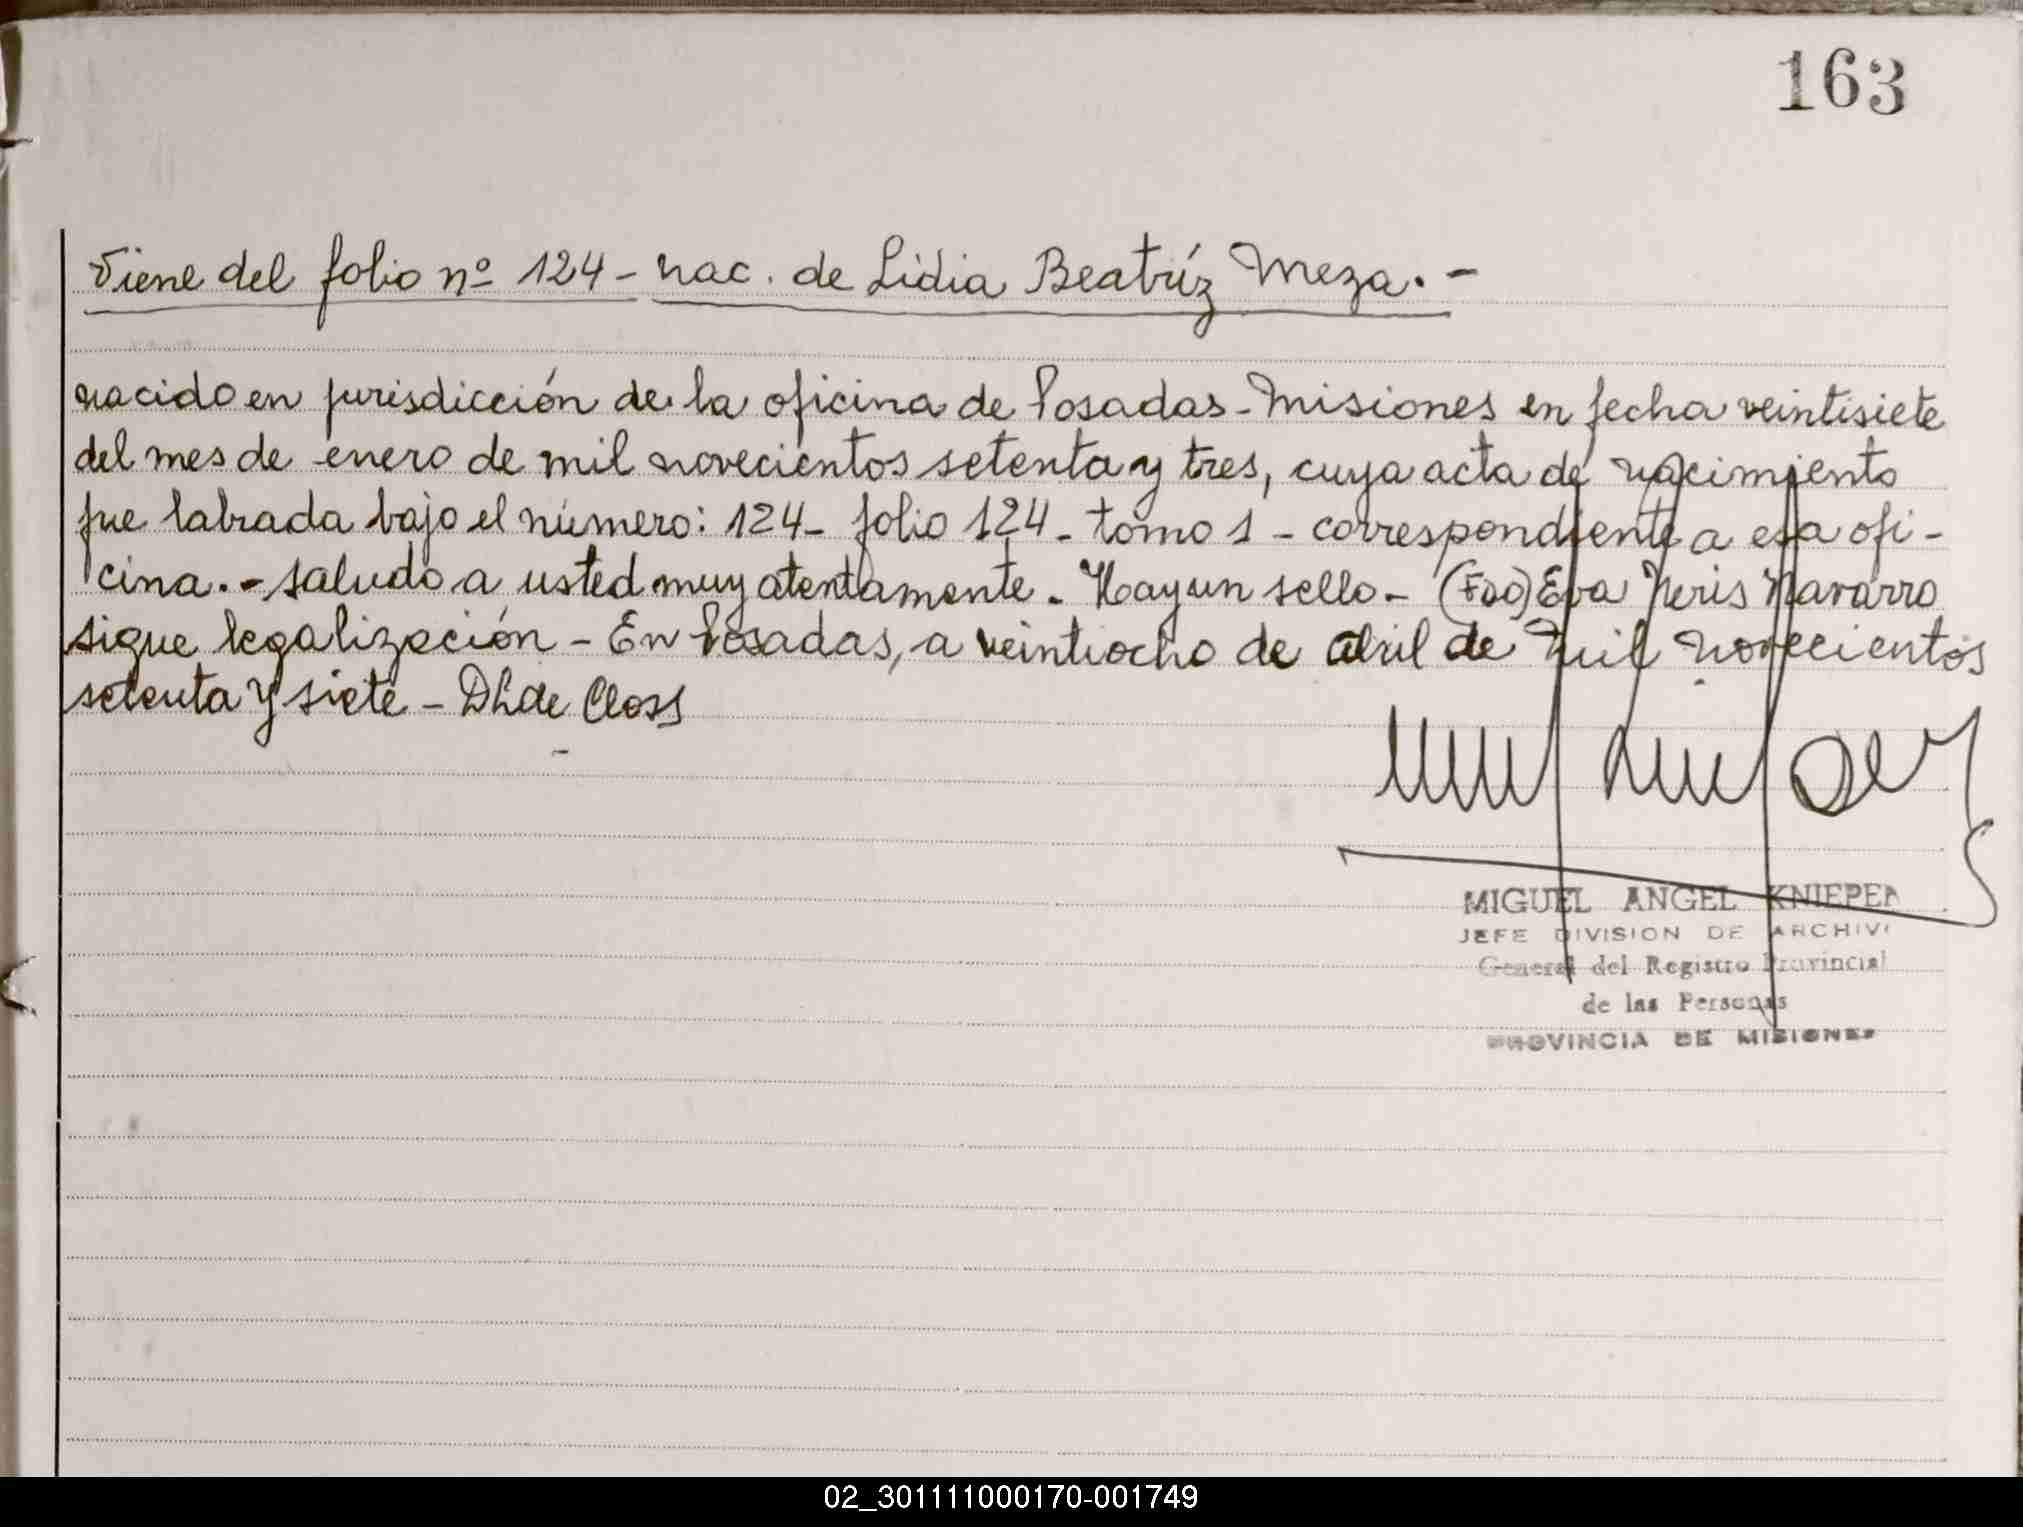 163
Viene del folio nº 124 - nac. de Lidia Beatríz Meza. -
nacido en jurisdicción de la oficina de Posadas - Misiones en fecha veintisiete
del mes de enero de mil novecientos setenta y tres, cuya acta de nacimiento
fue labrada bajo el número: 124 - folio 124 - tomo 1 - correspondiente a esa ofi-
cina. - saludo a usted muy atentamente - Hay un sello - (Fdo) Eva Neris Navarro
sigue legalización - En Posadas, a veintiocho de abril de mil novecientos
setenta y siete - de Closs
MIGUEL ANGEL KNIEPE
JEFE DIVISION DE ARCHIV
General del Registro Provincial
de las Personas
PROVINCIA DE MISIONES
02_301111000170-001749